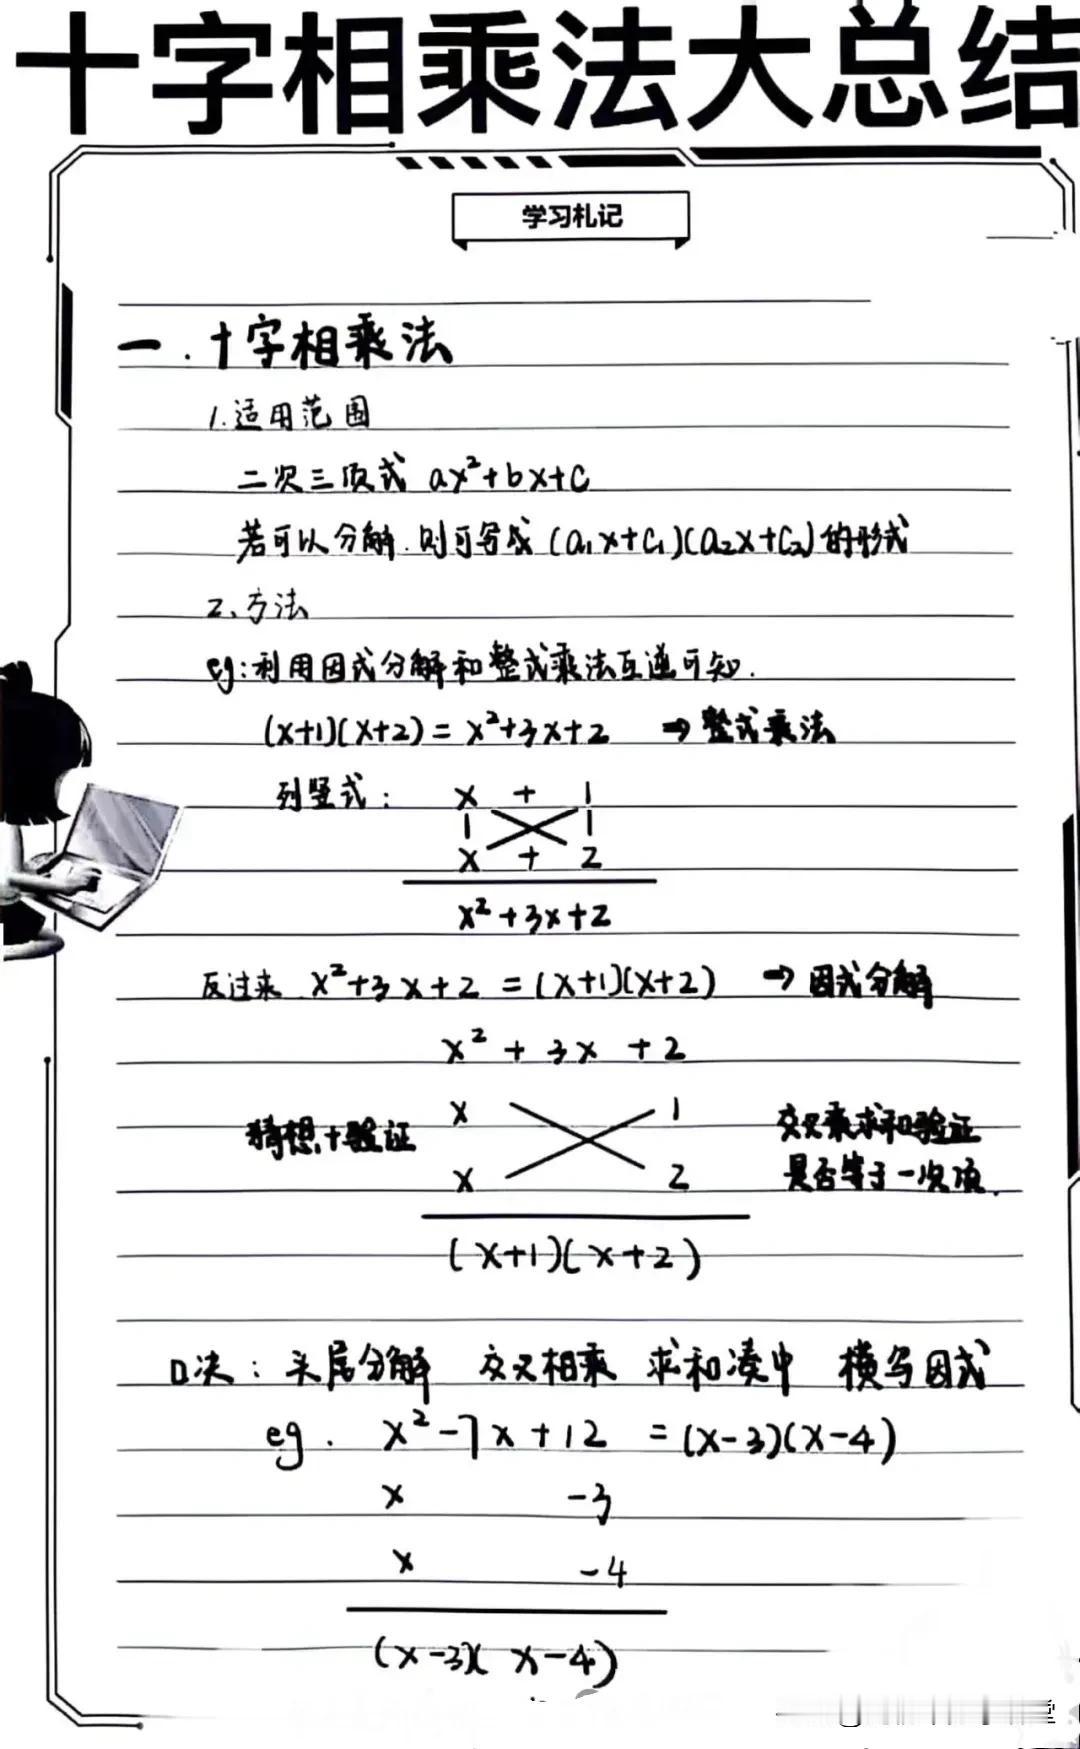 十字相乘法大总结
学习札记
一.十字相乘法
1.适用范围
二次三项式 ax²+bx+c
若可以分解.则可写成(a₁x+c₁)(a₂x+c₂)的形式
2、方法
eg:利用因式分解和整式乘法互逆可知.
(x+1)(x+2)=x²+3x+2 ⇒ 整式乘法
列竖式: x + 1
x + 2
x²+3x+2
反过来 x²+3x+2 =(x+1)(x+2) ⇒ 因式分解
x² + 3x +2
猜想+验证 x 1 交叉乘求和验证
x 2 是否等于一次项.
(x+1)(x+2)
口决: 头尾分解 交叉相乘 求和凑中 横写因式
eg. x²-7x+12 =(x-3)(x-4)
x -3
x -4
(x-3)(x-4)